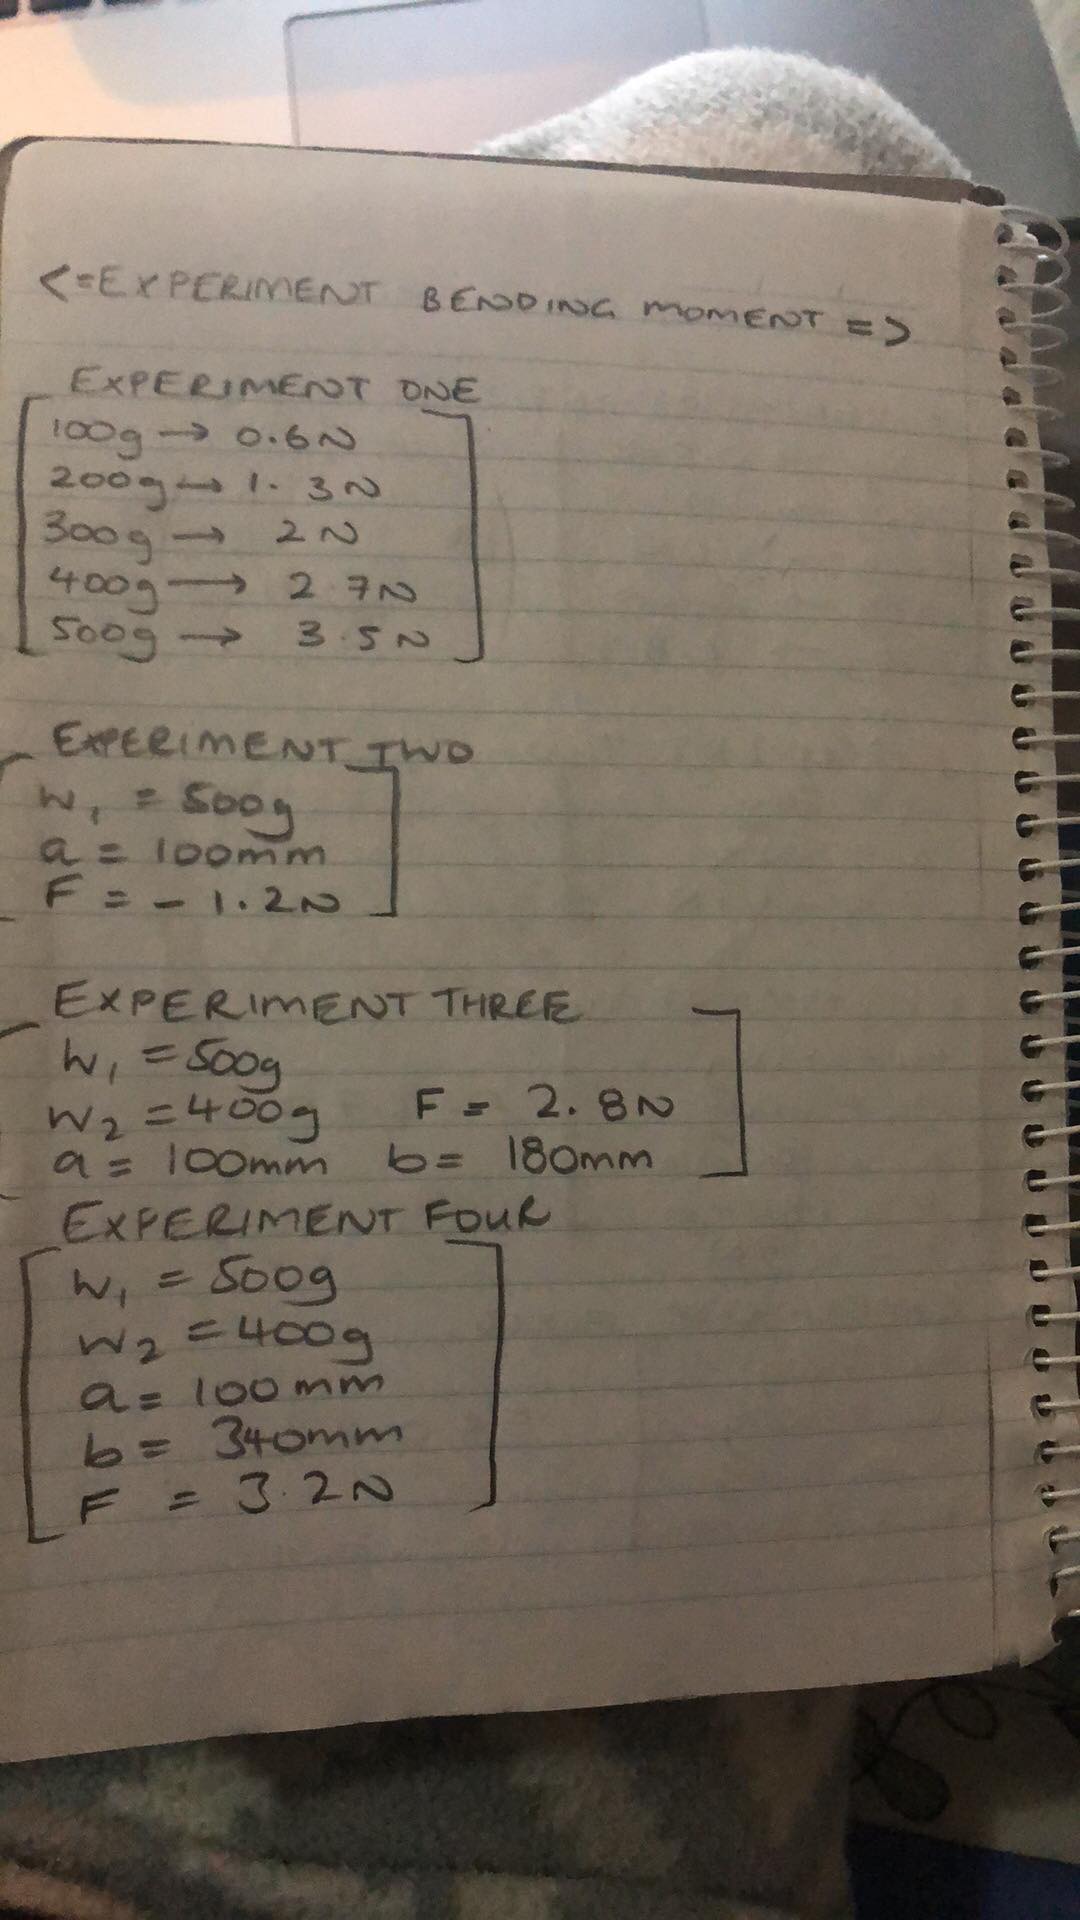 <=EXPERIMENT BENDING MOMENT =>
EXPERIMENT ONE
100g → 0.6N
200g → 1.3N
300g → 2N
400g → 2.7N
500g → 3.5N
EXPERIMENT TWO
W₁ = 500g
a = 100mm
F = - 1.2N
EXPERIMENT THREE
W₁ = 500g
W₂ = 400g F = 2.8N
a = 100mm b = 180mm
EXPERIMENT FOUR
W₁ = 500g
W₂ = 400g
a = 100mm
b = 340mm
F = 3.2N